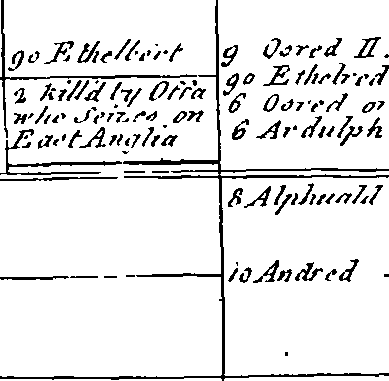 90 Ethelbert
2 kill'd by Offa
who Seizes on
East Anglia
9 Osred II.
90 Ethelred
6 Osred or
6 Ardulph
8 Alphuald
10 Andred